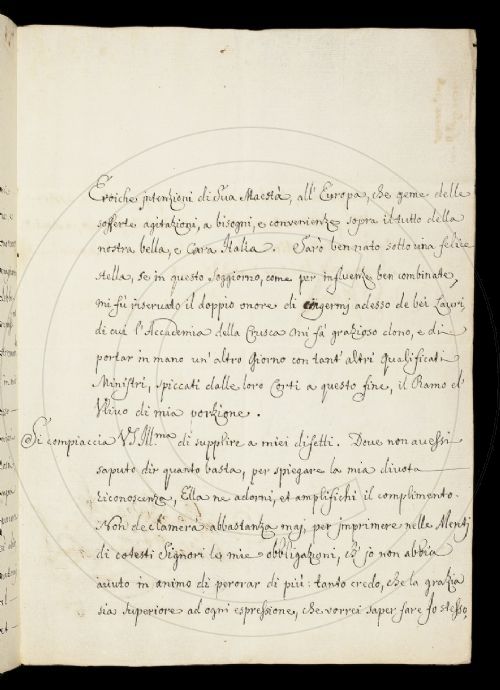 Eroiche intenzioni di Sua Maestà, all' Europa, che geme delle
sofferte agitazioni, a bisogni, e convenienze sopra il tutto della
nostra bella, e Cara Italia. Sarò ben nato sotto una felice
stella, se in questo Soggiorno, come per influenze ben combinate,
mi fù riservato il doppio onore di cingermi adesso de bei Lauri,
di cui l'Accademia della Crusca mi fà grazioso dono, e di
portar in mano un' altro Giorno con tant' altri qualificati
Ministri, spiccati dalle loro Corti a questo fine, il Ramo d'
Ulivo di mia porzione.
Si compiaccia VS Ill.ma di supplire a miei difetti. Dove non avessi
saputo dir quanto basta, per spiegare la mia divota
riconoscenza, Ella ne adorni, et amplifichi il complimento.
Non declamerà abbastanza mai, per imprimere nelle Menti
di cotesti Signori le mie obbligazioni, ch' io non abbia
avuto in animo di perorar di più: tanto credo, che la grazia
sia superiore ad ogni espressione, che vorrei saper fare Io stesso,